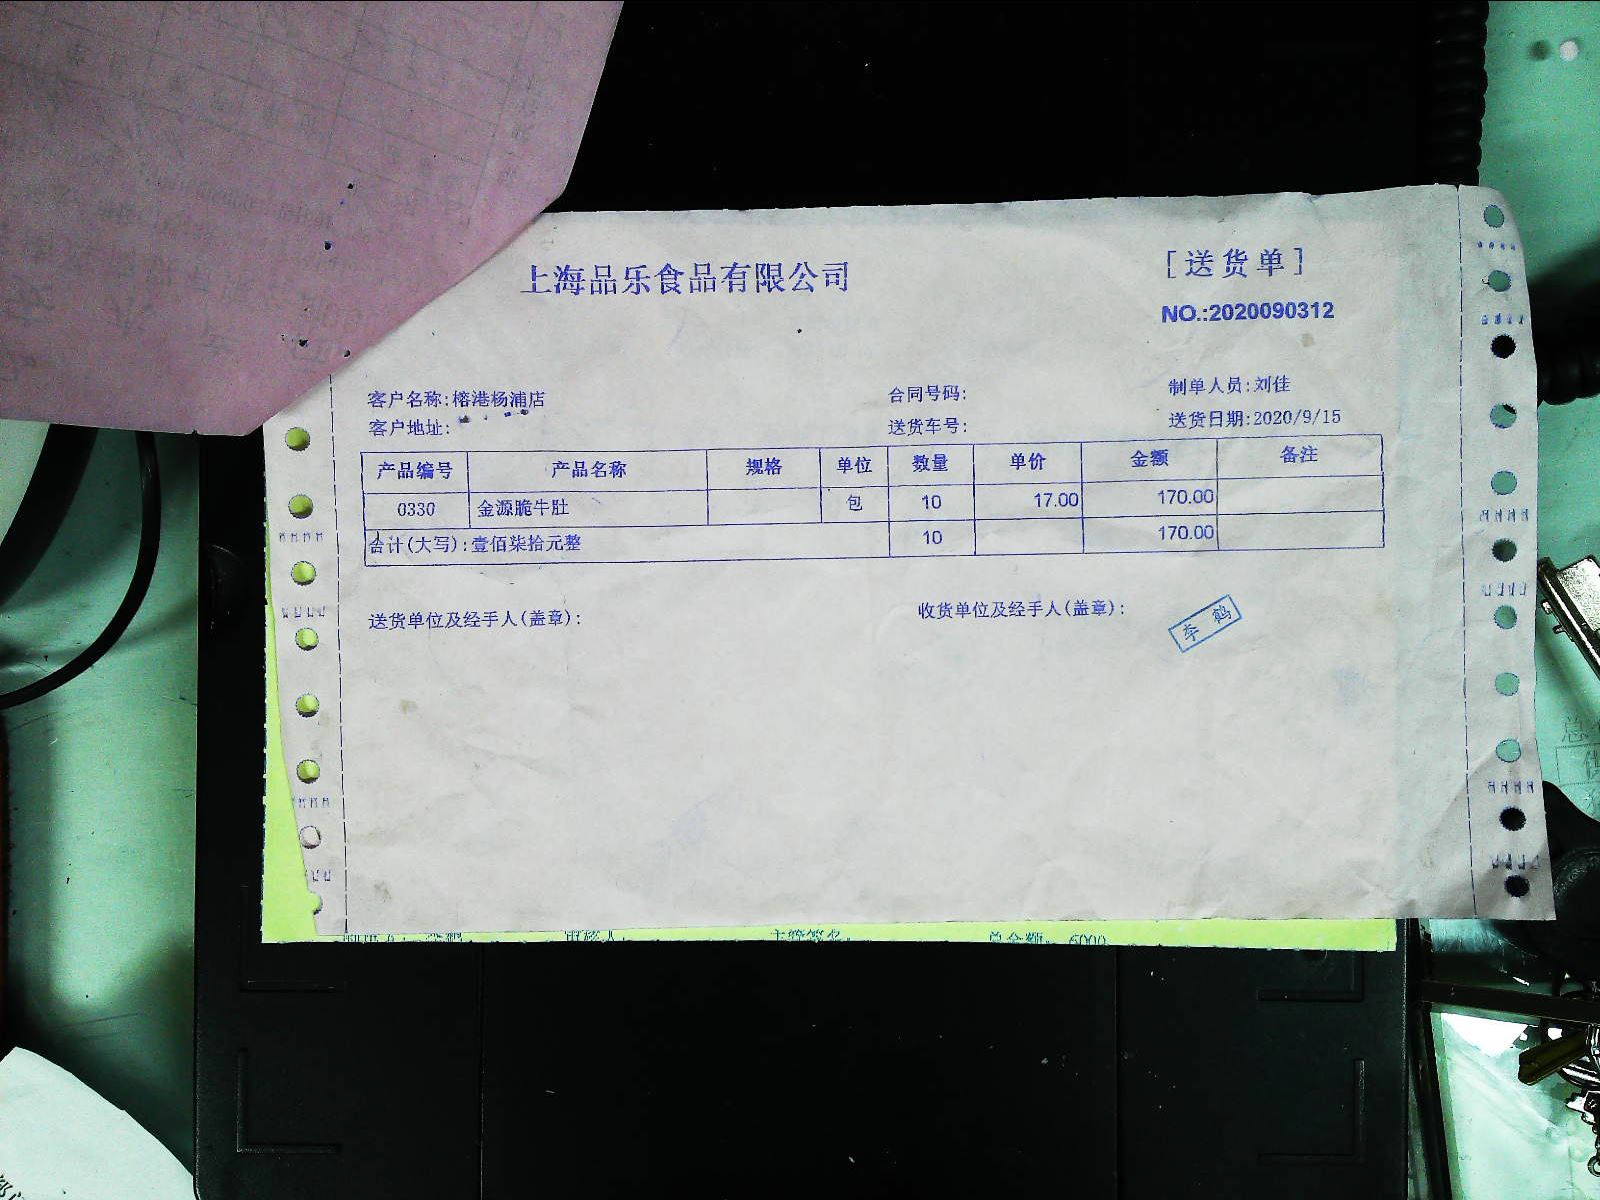 上海品乐食品有限公司
[送货单]
NO.:2020090312
客户名称:榕港杨浦店 合同号码: 制单人员:刘佳
客户地址: 送货车号: 送货日期:2020/9/15
产品编号 产品名称 规格 单位 数量 单价 金额 备注
0330 金源脆牛肚 包 10 17.00 170.00
合计(大写):壹佰柒拾元整 10 170.00
送货单位及经手人(盖章): 收货单位及经手人(盖章):
李鹤
总金额: 6000